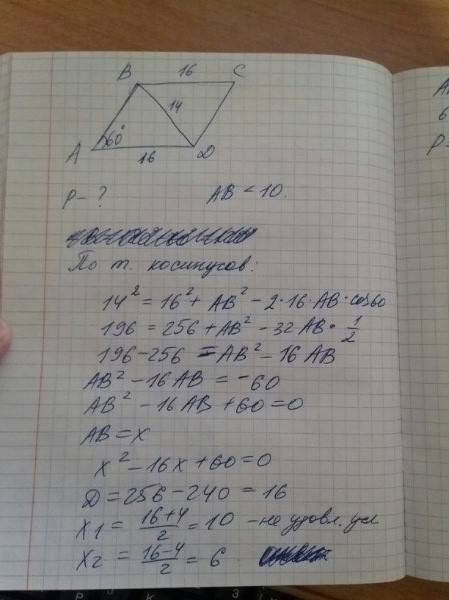 B 16 C
14
60°
A 16 D
P - ?
AB < 10.
По т. косинусов:
14² = 16² + AB² - 2·16·AB·cos60
196 = 256 + AB² - 32 AB · 1/2
196 - 256 = AB² - 16 AB
AB² - 16 AB = -60
AB² - 16 AB + 60 = 0
AB = x
x² - 16x + 60 = 0
D = 256 - 240 = 16
x1 = (16+4)/2 = 10 - не удовл. усл
x2 = (16-4)/2 = 6
A
6
P-